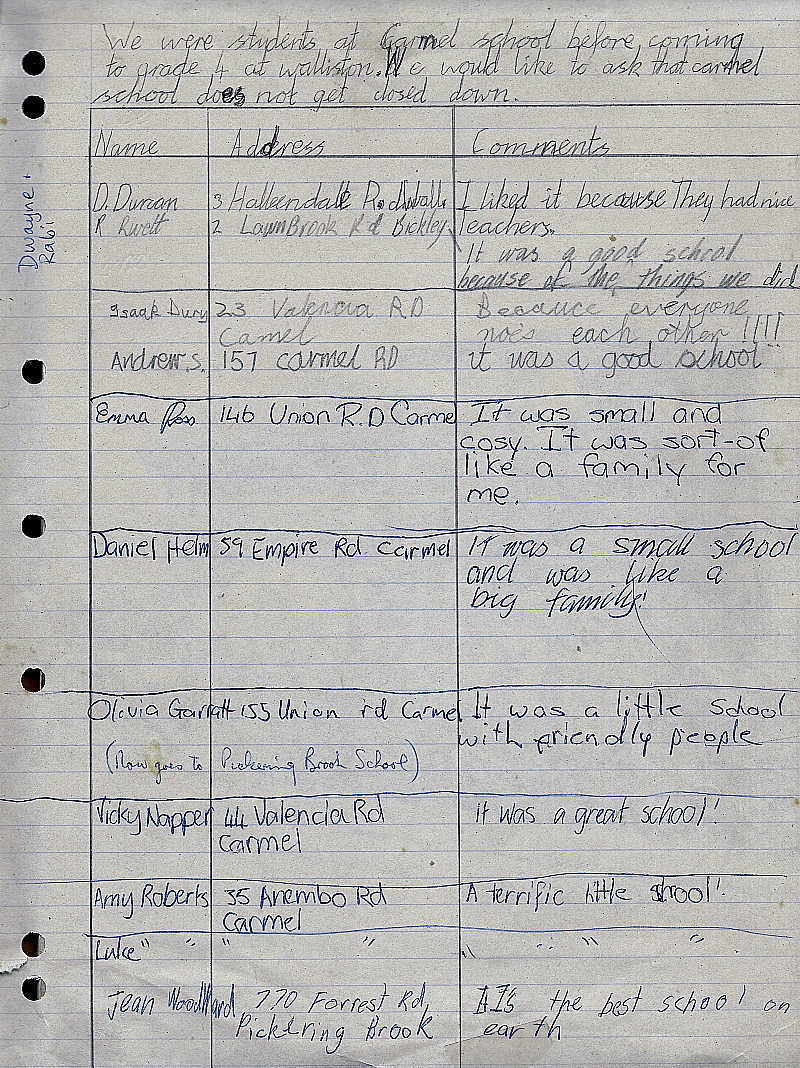 We were students at Carmel school before coming
to grade 4 at walliston. We would like to ask that carmel
school does not get closed down.
Name Address Comments
Dwayne +
Rabi
D. Duncan 3 I liked it because They had nice
R 2 LawnBrook Rd Bickley teachers.
It was a good school
because of the things we did
Isaak Dury 23 Valencia RD Becauce everyone
Camel noes each other !!!!
Andrew.S. 157 carmel RD it was a good school
Emma Ross 146 Union R.D Carme It was small and
cosy. It was sort-of
like a family for
me.
Daniel Helm 59 Empire Rd. Carmel It was a small school
and was like a
big family!
Olivia Garratt 155 Union rd Carmel It was a little School
with friendly people
(Now goes to Pickering Brook School)
Vicky Napper 44 Valencia Rd it was a great school!
Carmel
Amy Roberts 35 Anembo Rd A terrific little school!
Carmel
Luke " " " " " " " "
Jean Woodward 770 Forrest Rd, It's the best school on
Pickering Brook earth